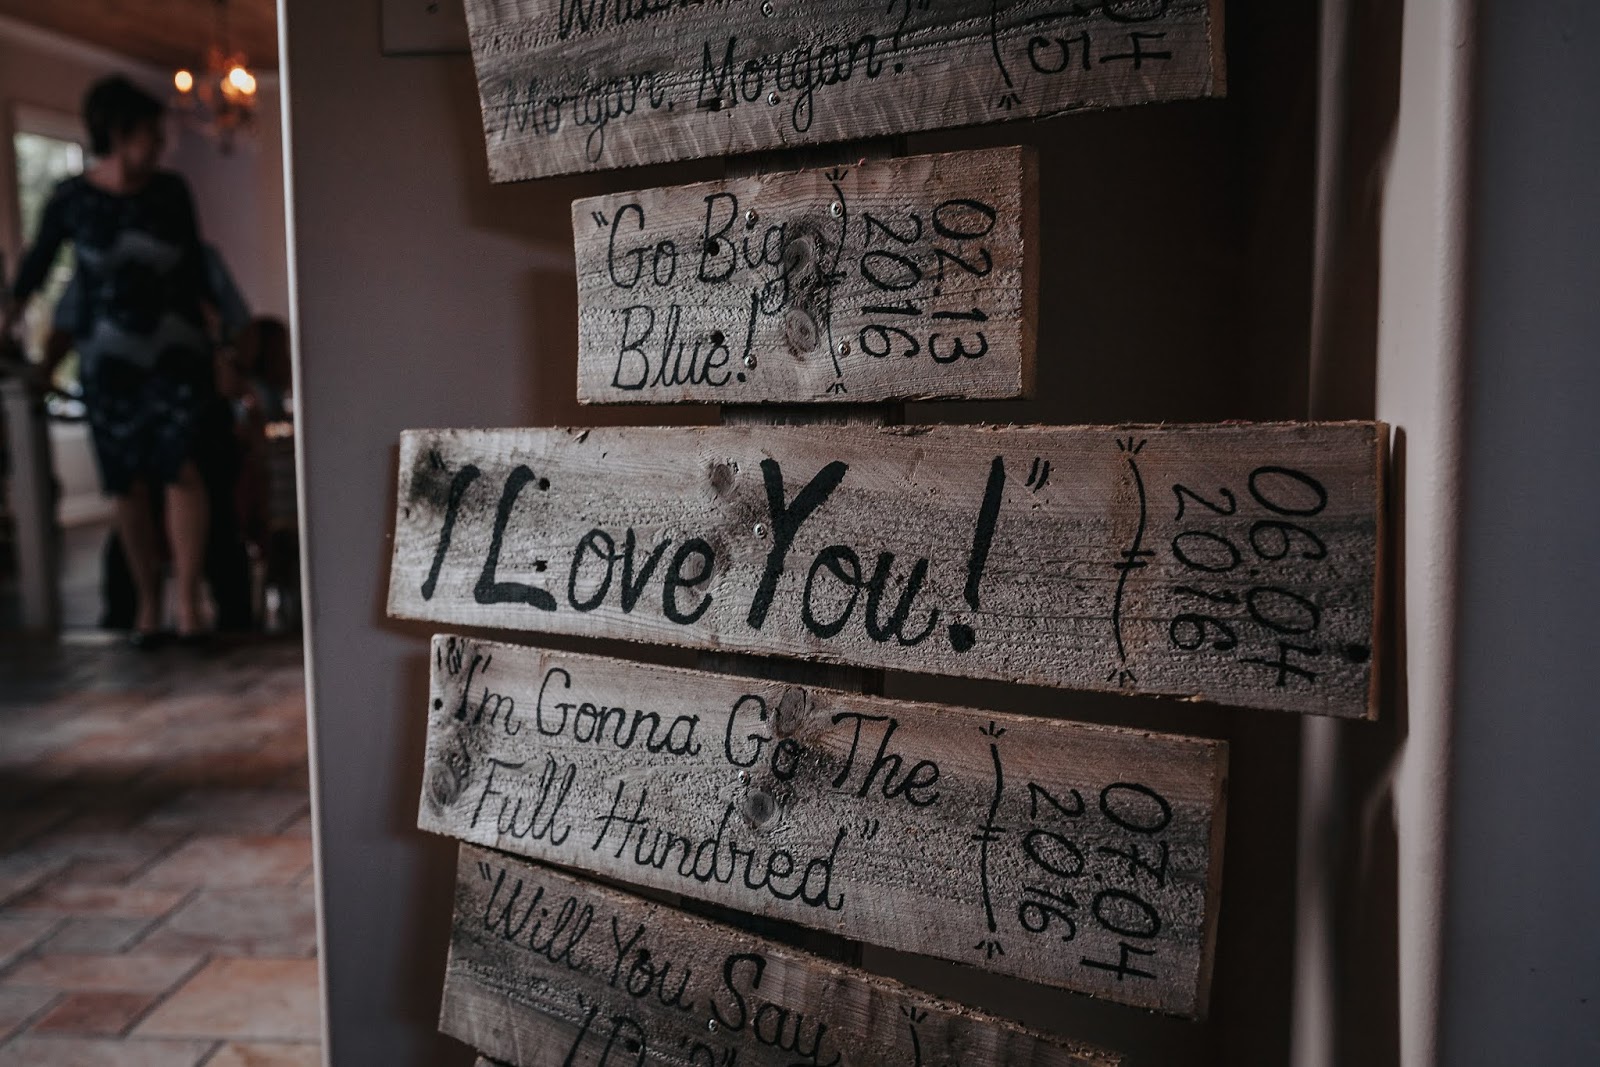 Morgan, Morgan!"
04
15
"Go Big
Blue!"
02.13
2016
"I Love You!"
06.04
2016
"I'm Gonna Go The
Full Hundred"
07.04
2016
"Will You Say